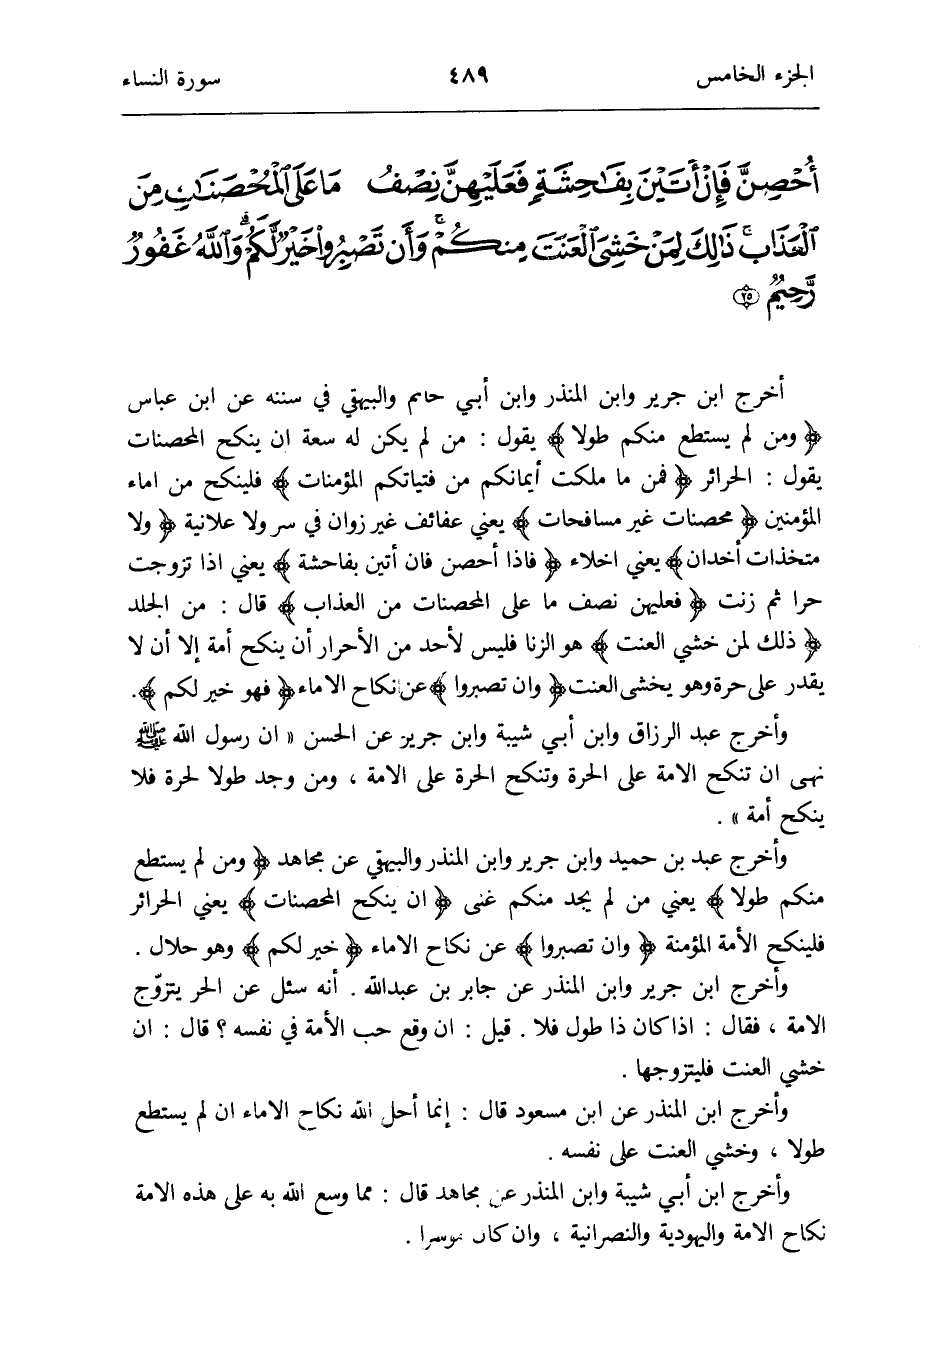 الجزء الخامس ٤٨٩ سورة النساء
أُحْصِنَّ فَإِنْ أَتَيْنَ بِفَاحِشَةٍ فَعَلَيْهِنَّ نِصْفُ مَا عَلَى ٱلْمُحْصَنَاتِ مِنَ
ٱلْعَذَابِ ۚ ذَالِكَ لِمَنْ خَشِىَ ٱلْعَنَتَ مِنكُمْ ۚ وَأَن تَصْبِرُوا۟ خَيْرٌ لَّكُمْ ۗ وَٱللَّهُ غَفُورٌ
رَّحِيمٌ ٢٥
أخرج ابن جرير وابن المنذر وابن أبي حاتم والبيهقي في سننه عن ابن عباس
﴿ ومن لم يستطع منكم طولا ﴾ يقول : من لم يكن له سعة ان ينكح المحصنات
يقول : الحرائر ﴿ فمن ما ملكت أيمانكم من فتياتكم المؤمنات ﴾ فلينكح من اماء
المؤمنين ﴿ محصنات غير مسافحات ﴾ يعني عفائف غير زوان في سر ولا علانية ﴿ ولا
متخذات أخدان ﴾ يعني اخلاء ﴿ فاذا أحصن فان أتين بفاحشة ﴾ يعني اذا تزوجت
حرا ثم زنت ﴿ فعليهن نصف ما على المحصنات من العذاب ﴾ قال : من الجلد
﴿ ذلك لمن خشي العنت ﴾ هو الزنا فليس لأحد من الأحرار أن ينكح أمة إلا أن لا
يقدر على حرة وهو يخشى العنت ﴿ وان تصبروا ﴾ عن نكاح الاماء ﴿ فهو خير لكم ﴾.
وأخرج عبد الرزاق وابن أبي شيبة وابن جرير عن الحسن « ان رسول الله ﷺ
نهى ان تنكح الامة على الحرة وتنكح الحرة على الامة ، ومن وجد طولا لحرة فلا
ينكح أمة » .
وأخرج عبد بن حميد وابن جرير وابن المنذر والبيهقي عن مجاهد ﴿ ومن لم يستطع
منكم طولا ﴾ يعني من لم يجد منكم غنى ﴿ ان ينكح المحصنات ﴾ يعني الحرائر
فلينكح الأمة المؤمنة ﴿ وان تصبروا ﴾ عن نكاح الاماء ﴿ خير لكم ﴾ وهو حلال .
وأخرج ابن جرير وابن المنذر عن جابر بن عبدالله . أنه سئل عن الحر يتزوّج
الامة ، فقال : اذا كان ذا طول فلا . قيل : ان وقع حب الأمة في نفسه ؟ قال : ان
خشي العنت فليتزوجها .
وأخرج ابن المنذر عن ابن مسعود قال : إنما أحل الله نكاح الاماء ان لم يستطع
طولا ، وخشي العنت على نفسه .
وأخرج ابن أبي شيبة وابن المنذر عن مجاهد قال : مما وسع الله به على هذه الامة
نكاح الامة واليهودية والنصرانية ، وان كان موسرا .